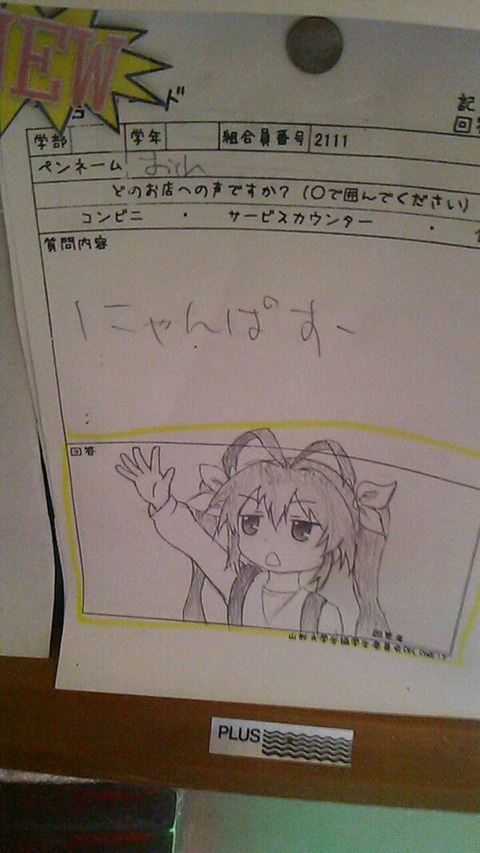 NEW
ード
記
回答
学部 学年 組合員番号 2111
ペンネーム
どのお店への声ですか？（○で囲んでください）
コンビニ ・ サービスカウンター ・
質問内容
にゃんぱすー
回答
PLUS